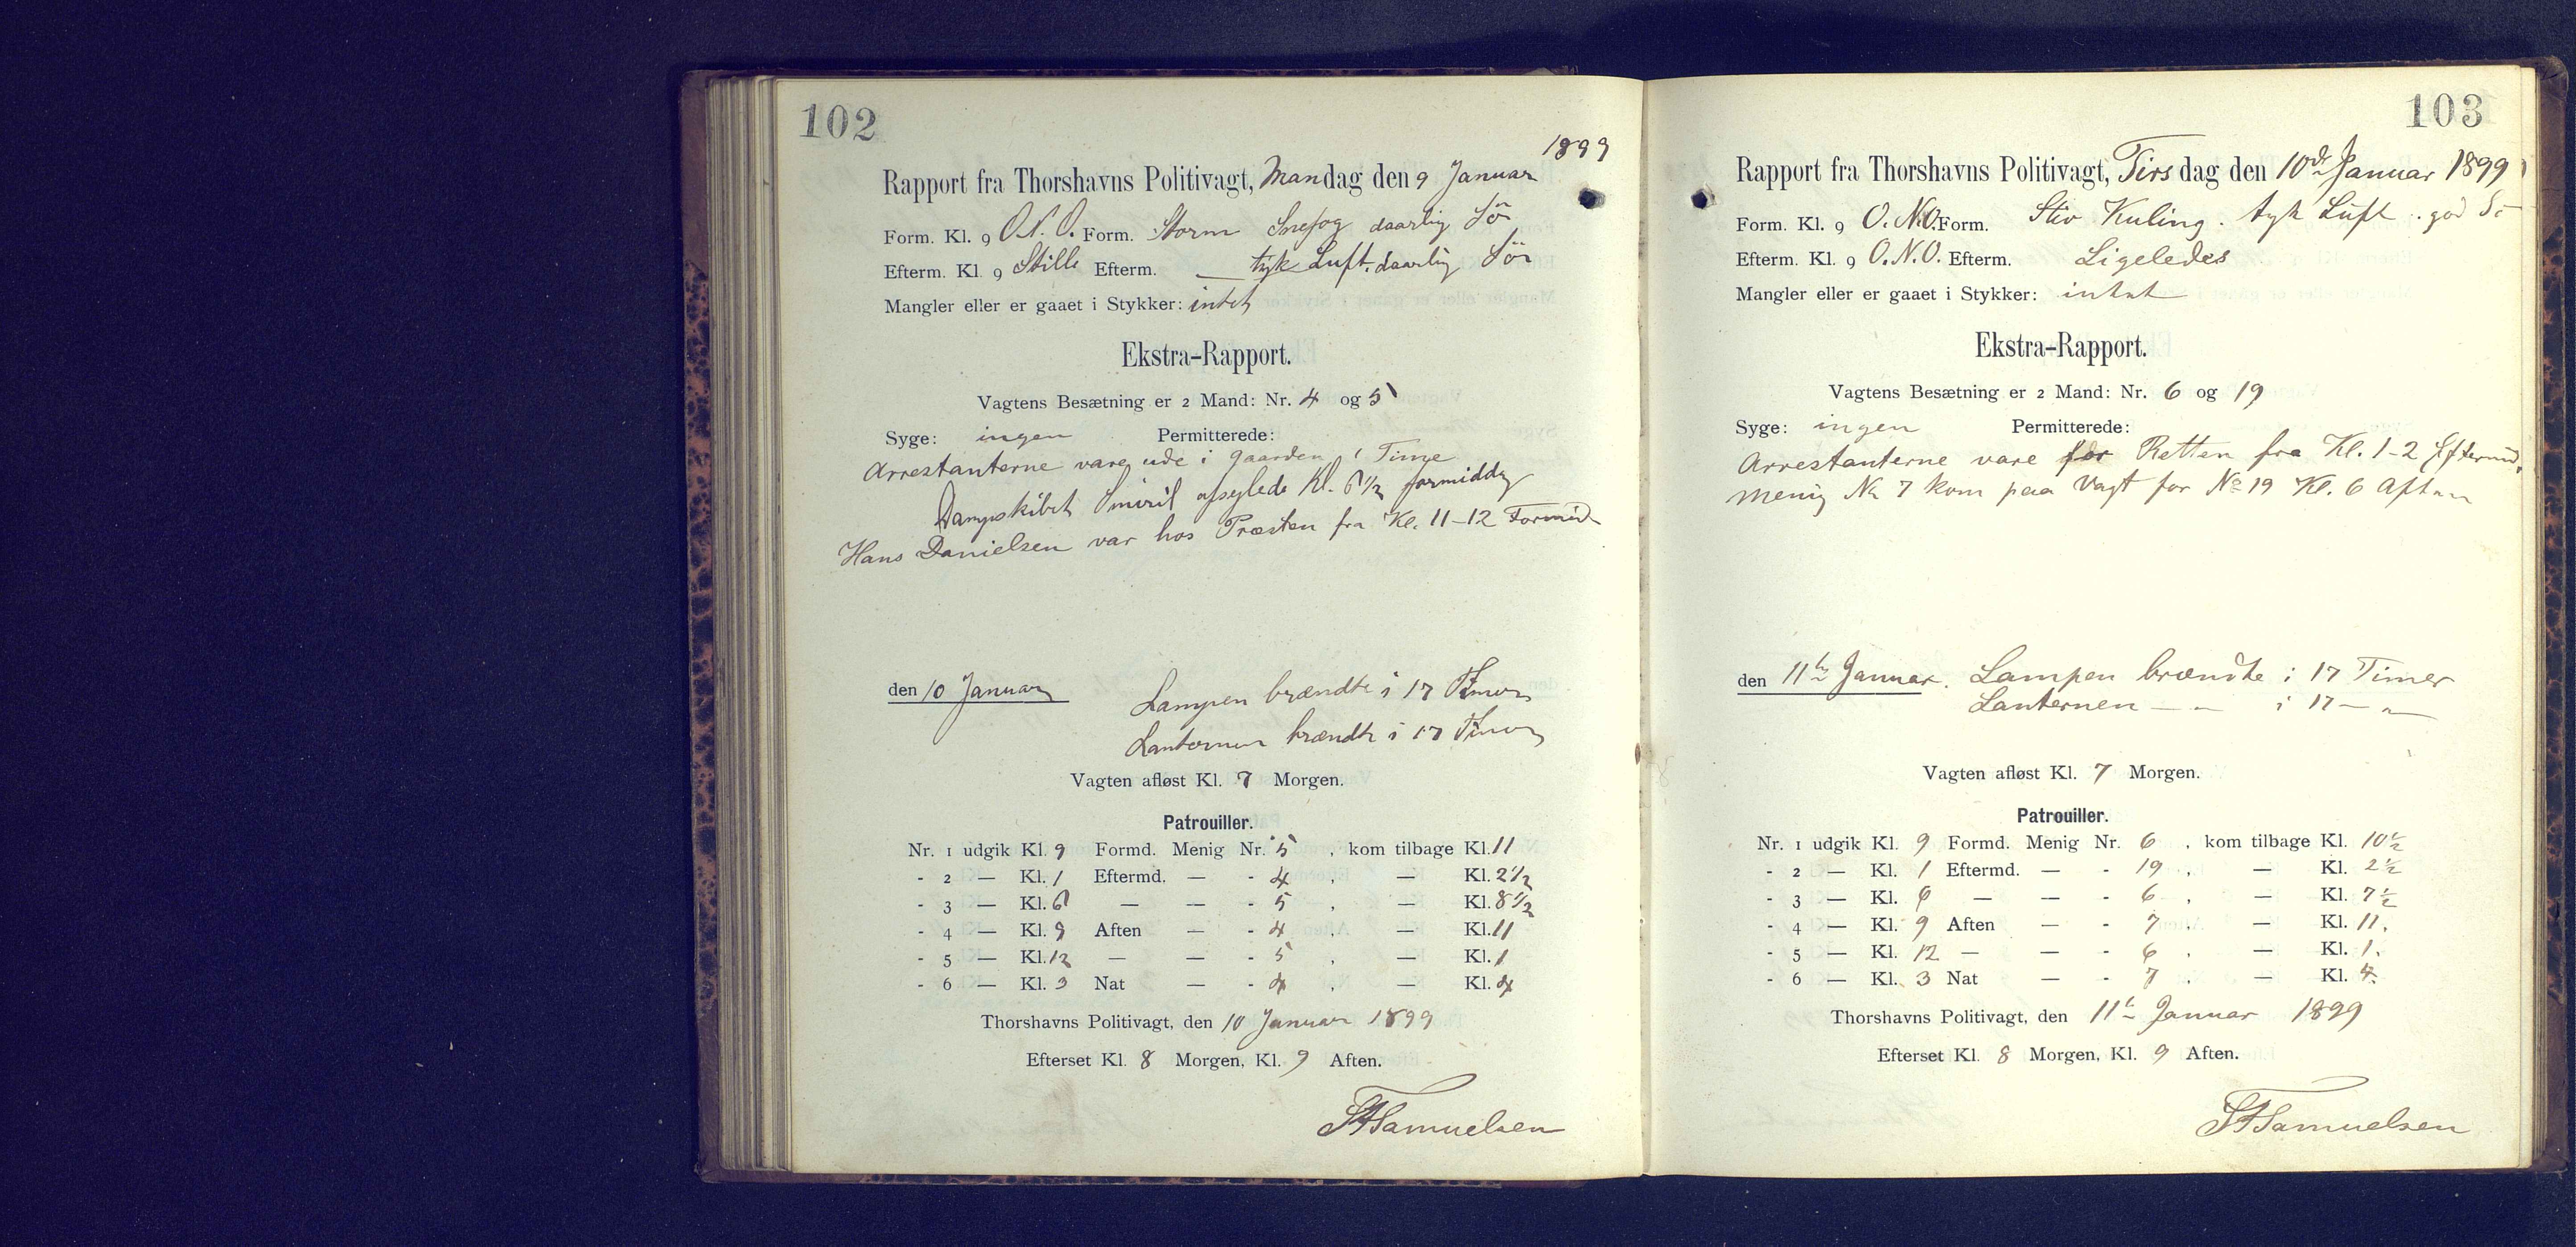 102
1899
Rapport fra Thorshavns Politivagt, Mandag den 9 Januar
Form. Kl. 9 O.N.O. Form. Storm Snefog daarlig Sö
Efterm. Kl. 9 Stille Efterm. — tyk Luft. daarlig Sö
Mangler eller er gaaet i Stykker: intet
Ekstra-Rapport.
Vagtens Besætning er 2 Mand: Nr. 4 og 5
Syge: ingen Permitterede:
Arrestanterne vare ude i gaarden 1 Time
Dampskibet Smiril afseglede Kl. 6 1/2 formiddag
Hans Danielsen var hos Præsten fra Kl. 11-12 Formid
den 10 Januar Lampen brændte i 17 Timer
Lanternen brændte i 17 Timer
Vagten afløst Kl. 7 Morgen.
Patrouiller.
Nr. 1 udgik Kl. 9 Formd. Menig Nr. 5 , kom tilbage Kl. 11
- 2 — Kl. 1 Eftermd. — - 4 , — Kl. 2 1/2
- 3 — Kl. 6 — — - 5 , — Kl. 8 1/2
- 4 — Kl. 9 Aften — - 4 , — Kl. 11
- 5 — Kl. 12 — — - 5 , — Kl. 1
- 6 — Kl. 3 Nat — - 4 , — Kl. 4
Thorshavns Politivagt, den 10 Januar 1899
Efterset Kl. 8 Morgen, Kl. 9 Aften.
Samuelsen
103
Rapport fra Thorshavns Politivagt, Tirsdag den 10de Januar 1899
Form. Kl. 9 O.N.O. Form. Stiv Kuling. tyk Luft. god Sö
Efterm. Kl. 9 O.N.O. Efterm. Ligeledes
Mangler eller er gaaet i Stykker: intet
Ekstra-Rapport.
Vagtens Besætning er 2 Mand: Nr. 6 og 19
Syge: ingen Permitterede:
Arrestanterne vare for Retten fra Kl. 1-2 Eftermid.
Menig No 7 kom paa Vagt for No 19 Kl. 6 Aften
den 11te Januar. Lampen brændte i 17 Timer
Lanternen — " i 17 — "
Vagten afløst Kl. 7 Morgen.
Patrouiller.
Nr. 1 udgik Kl. 9 Formd. Menig Nr. 6 , kom tilbage Kl. 10 1/2
- 2 — Kl. 1 Eftermd. — - 19 , — Kl. 2 1/2
- 3 — Kl. 6 — — - 6 , — Kl. 7 1/2
- 4 — Kl. 9 Aften — - 7 , — Kl. 11.
- 5 — Kl. 12 — — - 6 , — Kl. 1.
- 6 — Kl. 3 Nat — - 7 , — Kl. 4.
Thorshavns Politivagt, den 11te Januar 1899
Efterset Kl. 8 Morgen, Kl. 9 Aften.
Samuelsen